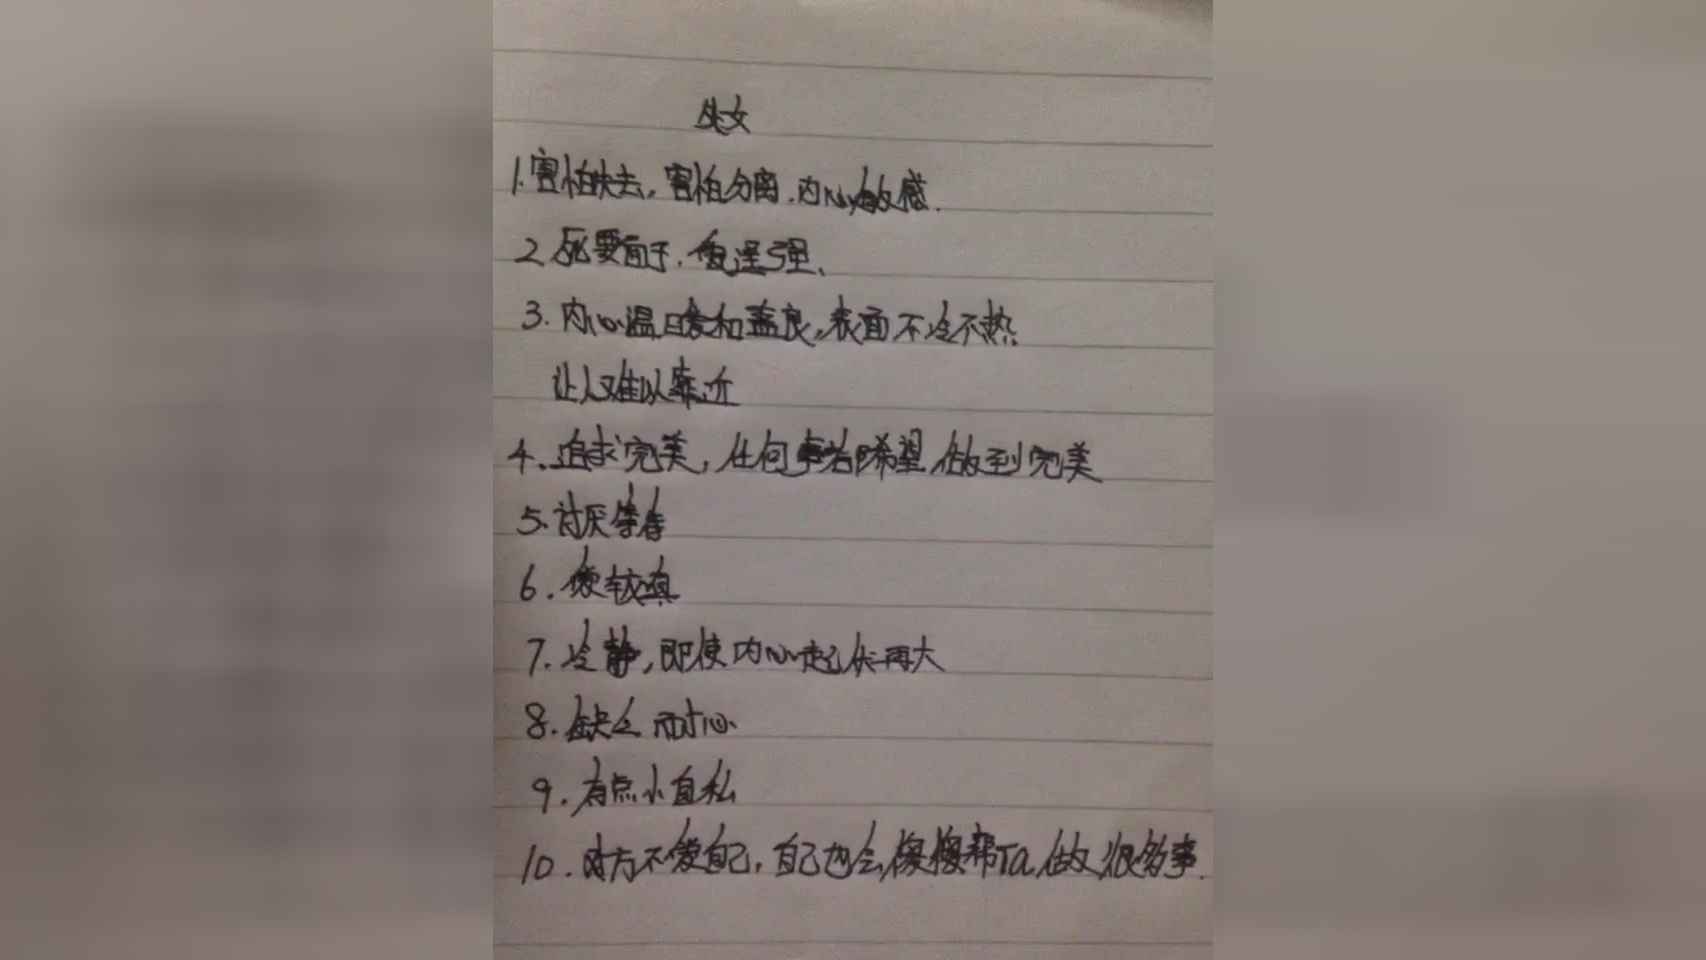 处女
1.害怕失去,害怕分离.内心敏感.
2.死要面子.爱逞强、
3.内心温暖和善良,表面不冷不热
让人难以靠近
4、追求完美,任何事若都希望做到完美
5.讨厌等待
6.爱较真
7.冷静,即使内心起伏再大
8.缺乏耐心.
9.有点小自私
10.对方不爱自己.自己也会傻傻帮Ta做很多事.